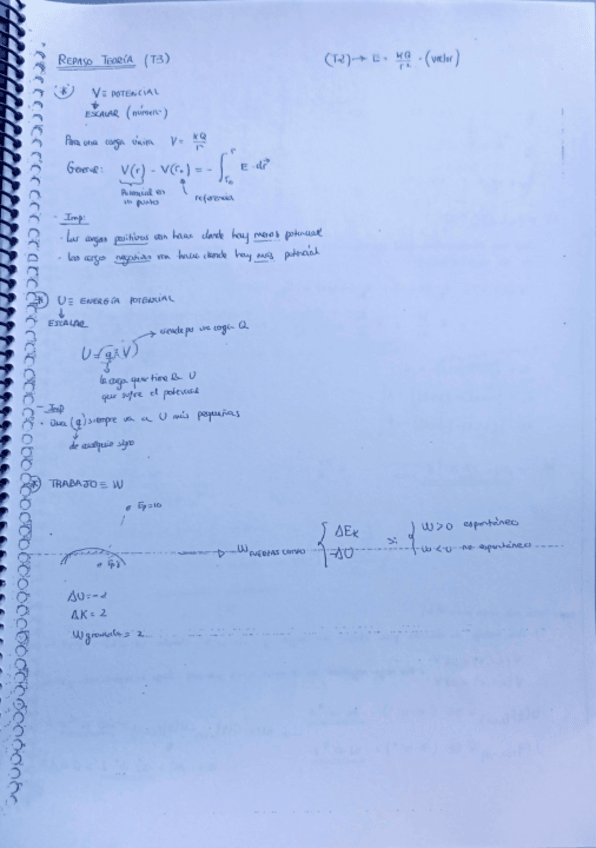 REPASO TEORÍA (T3)
(T2) → E = KQ/r² · (vector)
(*) V ≡ POTENCIAL
↓
ESCALAR (número)
Para una carga V = KQ/r
General: V(r) - V(r₀) = - ∫ E · dr
Potencial en un punto
referencia
- Imp:
· Las cargas positivas van hacia donde hay menos potencial
· Las cargas negativas van hacia donde hay más potencial
(*) U ≡ ENERGÍA POTENCIAL
↓
ESCALAR
U = (q · V) → siendo una carga Q
la carga que tiene la U
que sufre el potencial
- Imp
· Una (q) siempre va a U más pequeñas
↓
de cualquier signo
(*) TRABAJO ≡ W
Ep=10
W FUERZAS CAMPO
ΔEk
-ΔU
W>0 espontáneo
W<0 no espontáneo
ΔU = -2
ΔK = 2
W = 2